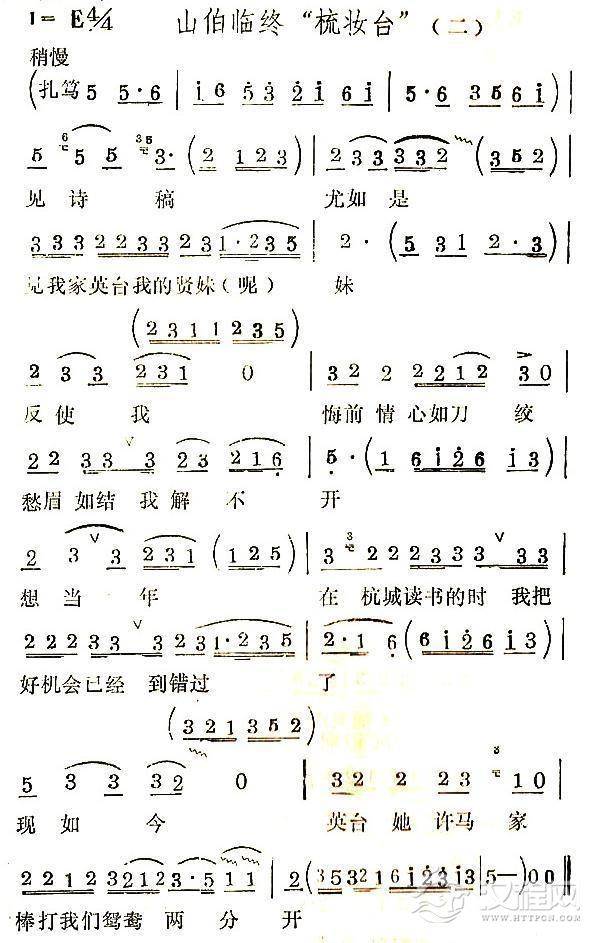 1=E 4/4 山伯临终“梳妆台”(二)
稍慢
(扎笃 5 5·6 | i 6 5 3 2 i 6 i | 5·6 3 5 6 i)
5 5 5 3· (2 1 2 3 | 2 3 3 3 3 2 (3 5 2)
见诗稿 尤如是
3 3 3 2 2 3 3 2 3 1·2 3 5 | 2· (5 3 1 2·3)
见我家英台我的贤妹(呢) 妹
(2 3 1 1 2 3 5)
2 3 3 2 3 1 0 | 3 2 2 2 2 1 2 3 0
反使我 悔前情心如刀绞
2 2 3 3 3 2 3 2 1 6 | 5·(6 i 2 6 i 3)
愁眉如结我解不开
2 3 3 2 3 1 (1 2 5) | 3 2 2 2 3 3 3 3 3
想当年 在杭城读书的时我把
2 2 2 3 3 3 2 3 1·2 3 5 | 2·1 6 (6 i 2 6 i 3)
好机会已经到错过了
(3 2 1 3 5 2)
5 3 3 3 2 0 | 3 2 2 2 3 1 0
现如今 英台她许马家
2 2 1 2 3 2 1 2 2 3·5 1 1 | 2 (3 5 3 2 1 6 i 2 3 i | 5—) 0 0
棒打我们鸳鸯两分开
汉程网
WWW.HTTPCN.COM